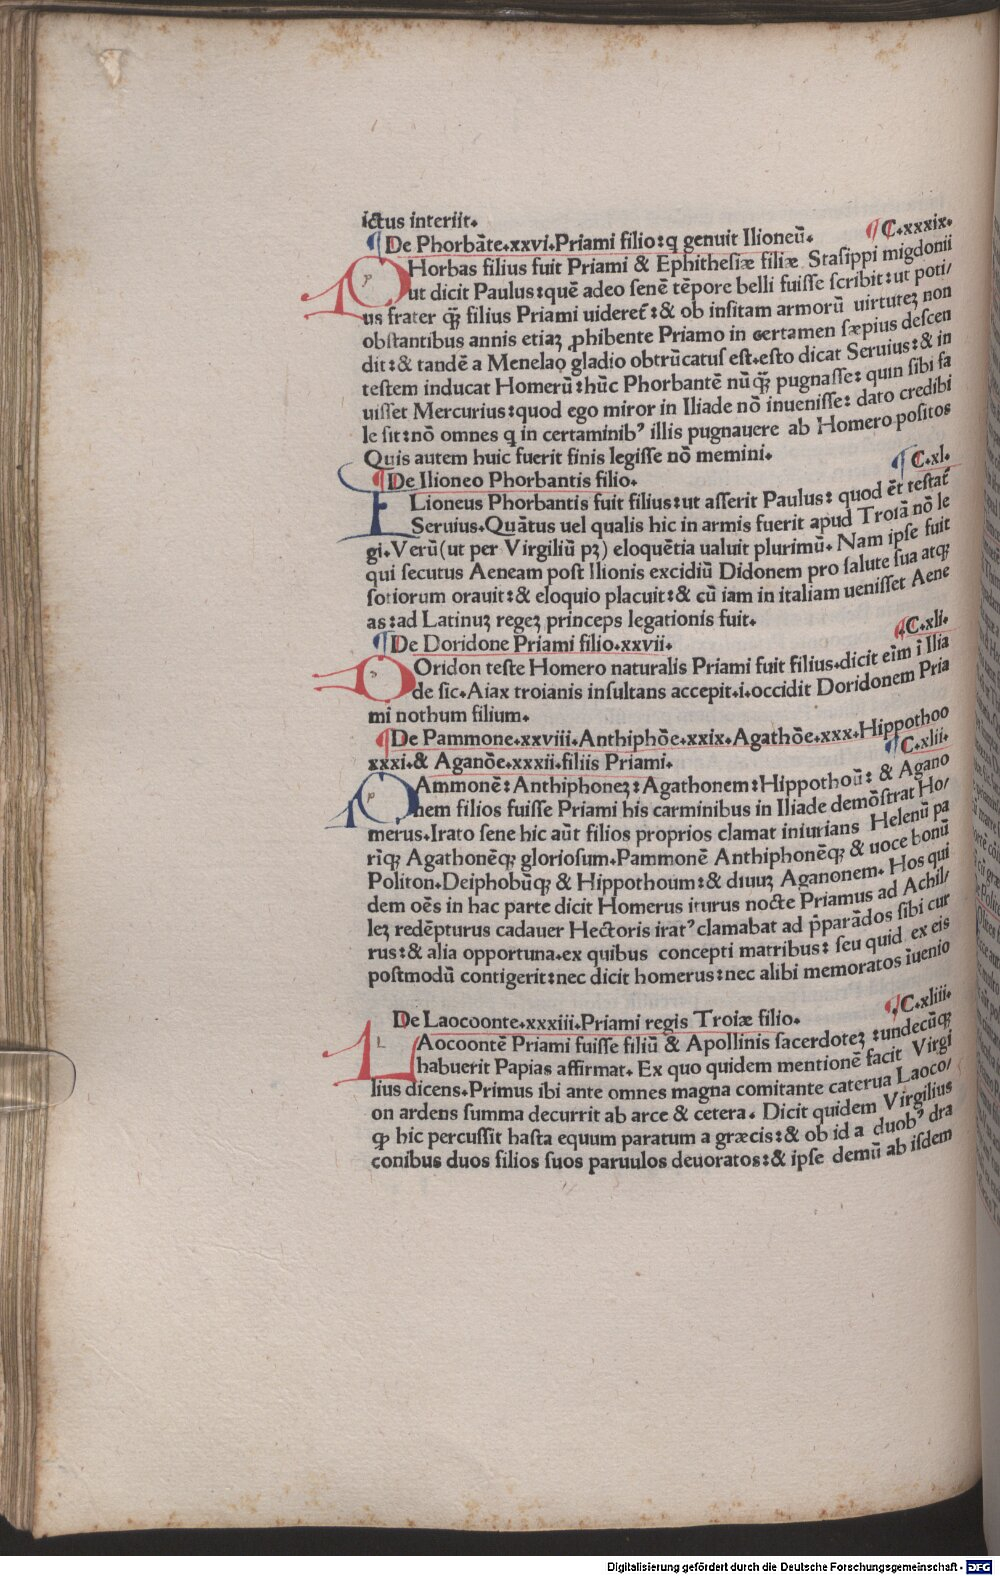 ictus interiit.
¶De Phorbāte.xxvi.Priami filio:q genuit Ilioneū. ¶C.xxxix.
PHorbas filius fuit Priami & Ephithesiæ filiæ Stasippi migdonii
ut dicit Paulus:quē adeo senē tēpore belli fuisse scribit:ut poti/
us frater q̄ȝ filius Priami uideret᷑:& ob insitam armorū uirtuteȝ non
obstantibus annis etiaȝ ꝓhibente Priamo in certamen sæpius descen
dit:& tandē a Menelao gladio obtrūcatus est.esto dicat Seruius:& in
testem inducat Homerū:hūc Phorbantē nūq̄ȝ pugnasse: quin sibi fa
uisset Mercurius:quod ego miror in Iliade nō inuenisse: dato credibi
le sit:nō omnes q in certaminib᾽ illis pugnauere ab Homero positos
Quis autem huic fuerit finis legisse nō memini.
¶De Ilioneo Phorbantis filio. ¶C.xl.
ILioneus Phorbantis fuit filius:ut asserit Paulus: quod ēt testat᷑
Seruius.Quātus uel qualis hic in armis fuerit apud Troiā nō le
gi.Verū(ut per Virgiliū pȝ) eloquētia ualuit plurimū. Nam ipse fuit
qui secutus Aeneam post Ilionis excidiū Didonem pro salute sua atqȝ
sotiorum orauit:& eloquio placuit:& cū iam in italiam uenisset Aene
as:ad Latinuȝ regeȝ princeps legationis fuit.
¶De Doridone Priami filio.xxvii. ¶.C.xli.
DOridon teste Homero naturalis Priami fuit filius.dicit eīm ī Ilia
de sic.Aiax troianis insultans accepit.i.occidit Doridonem Pria
mi nothum filium.
¶De Pammone.xxviii.Anthiphōe.xxix.Agathōe.xxx.Hippothoo
xxxi.& Aganōe.xxxii.filiis Priami. ¶C.xlii.
PAmmonē:Anthiphoneȝ:Agathonem:Hippothoū: & Agano
nem filios fuisse Priami his carminibus in Iliade demōstrat Ho/
merus.Irato sene hic aūt filios proprios clamat iniurians Helenū pa
rīqȝ Agathonēqȝ gloriosum.Pammonē Anthiphonēqȝ & uoce bonū
Politon.Deiphobūqȝ & Hippothoum:& diuuȝ Aganonem. Hos qui
dem oēs in hac parte dicit Homerus iturus nocte Priamus ad Achil/
leȝ redēpturus cadauer Hectoris irat᾽ clamabat ad p̄parādos sibi cur
rus:& alia opportuna.ex quibus concepti matribus: seu quid ex eis
postmodū contigerit:nec dicit homerus:nec alibi memoratos īuenio
De Laocoonte.xxxiii.Priami regis Troiæ filio. ¶C.xliii.
LAocoontē Priami fuisse filiū & Apollinis sacerdoteȝ :undecūqȝ
habuerit Papias affirmat. Ex quo quidem mentionē facit Virgi
lius dicens.Primus ibi ante omnes magna comitante caterua Laoco/
on ardens summa decurrit ab arce & cetera. Dicit quidem Virgilius
ꝙ hic percussit hasta equum paratum a græcis:& ob id a duob᾽ dra
conibus duos filios suos paruulos deuoratos:& ipse demū ab isdem
Digitalisierung gefördert durch die Deutsche Forschungsgemeinschaft - DFG